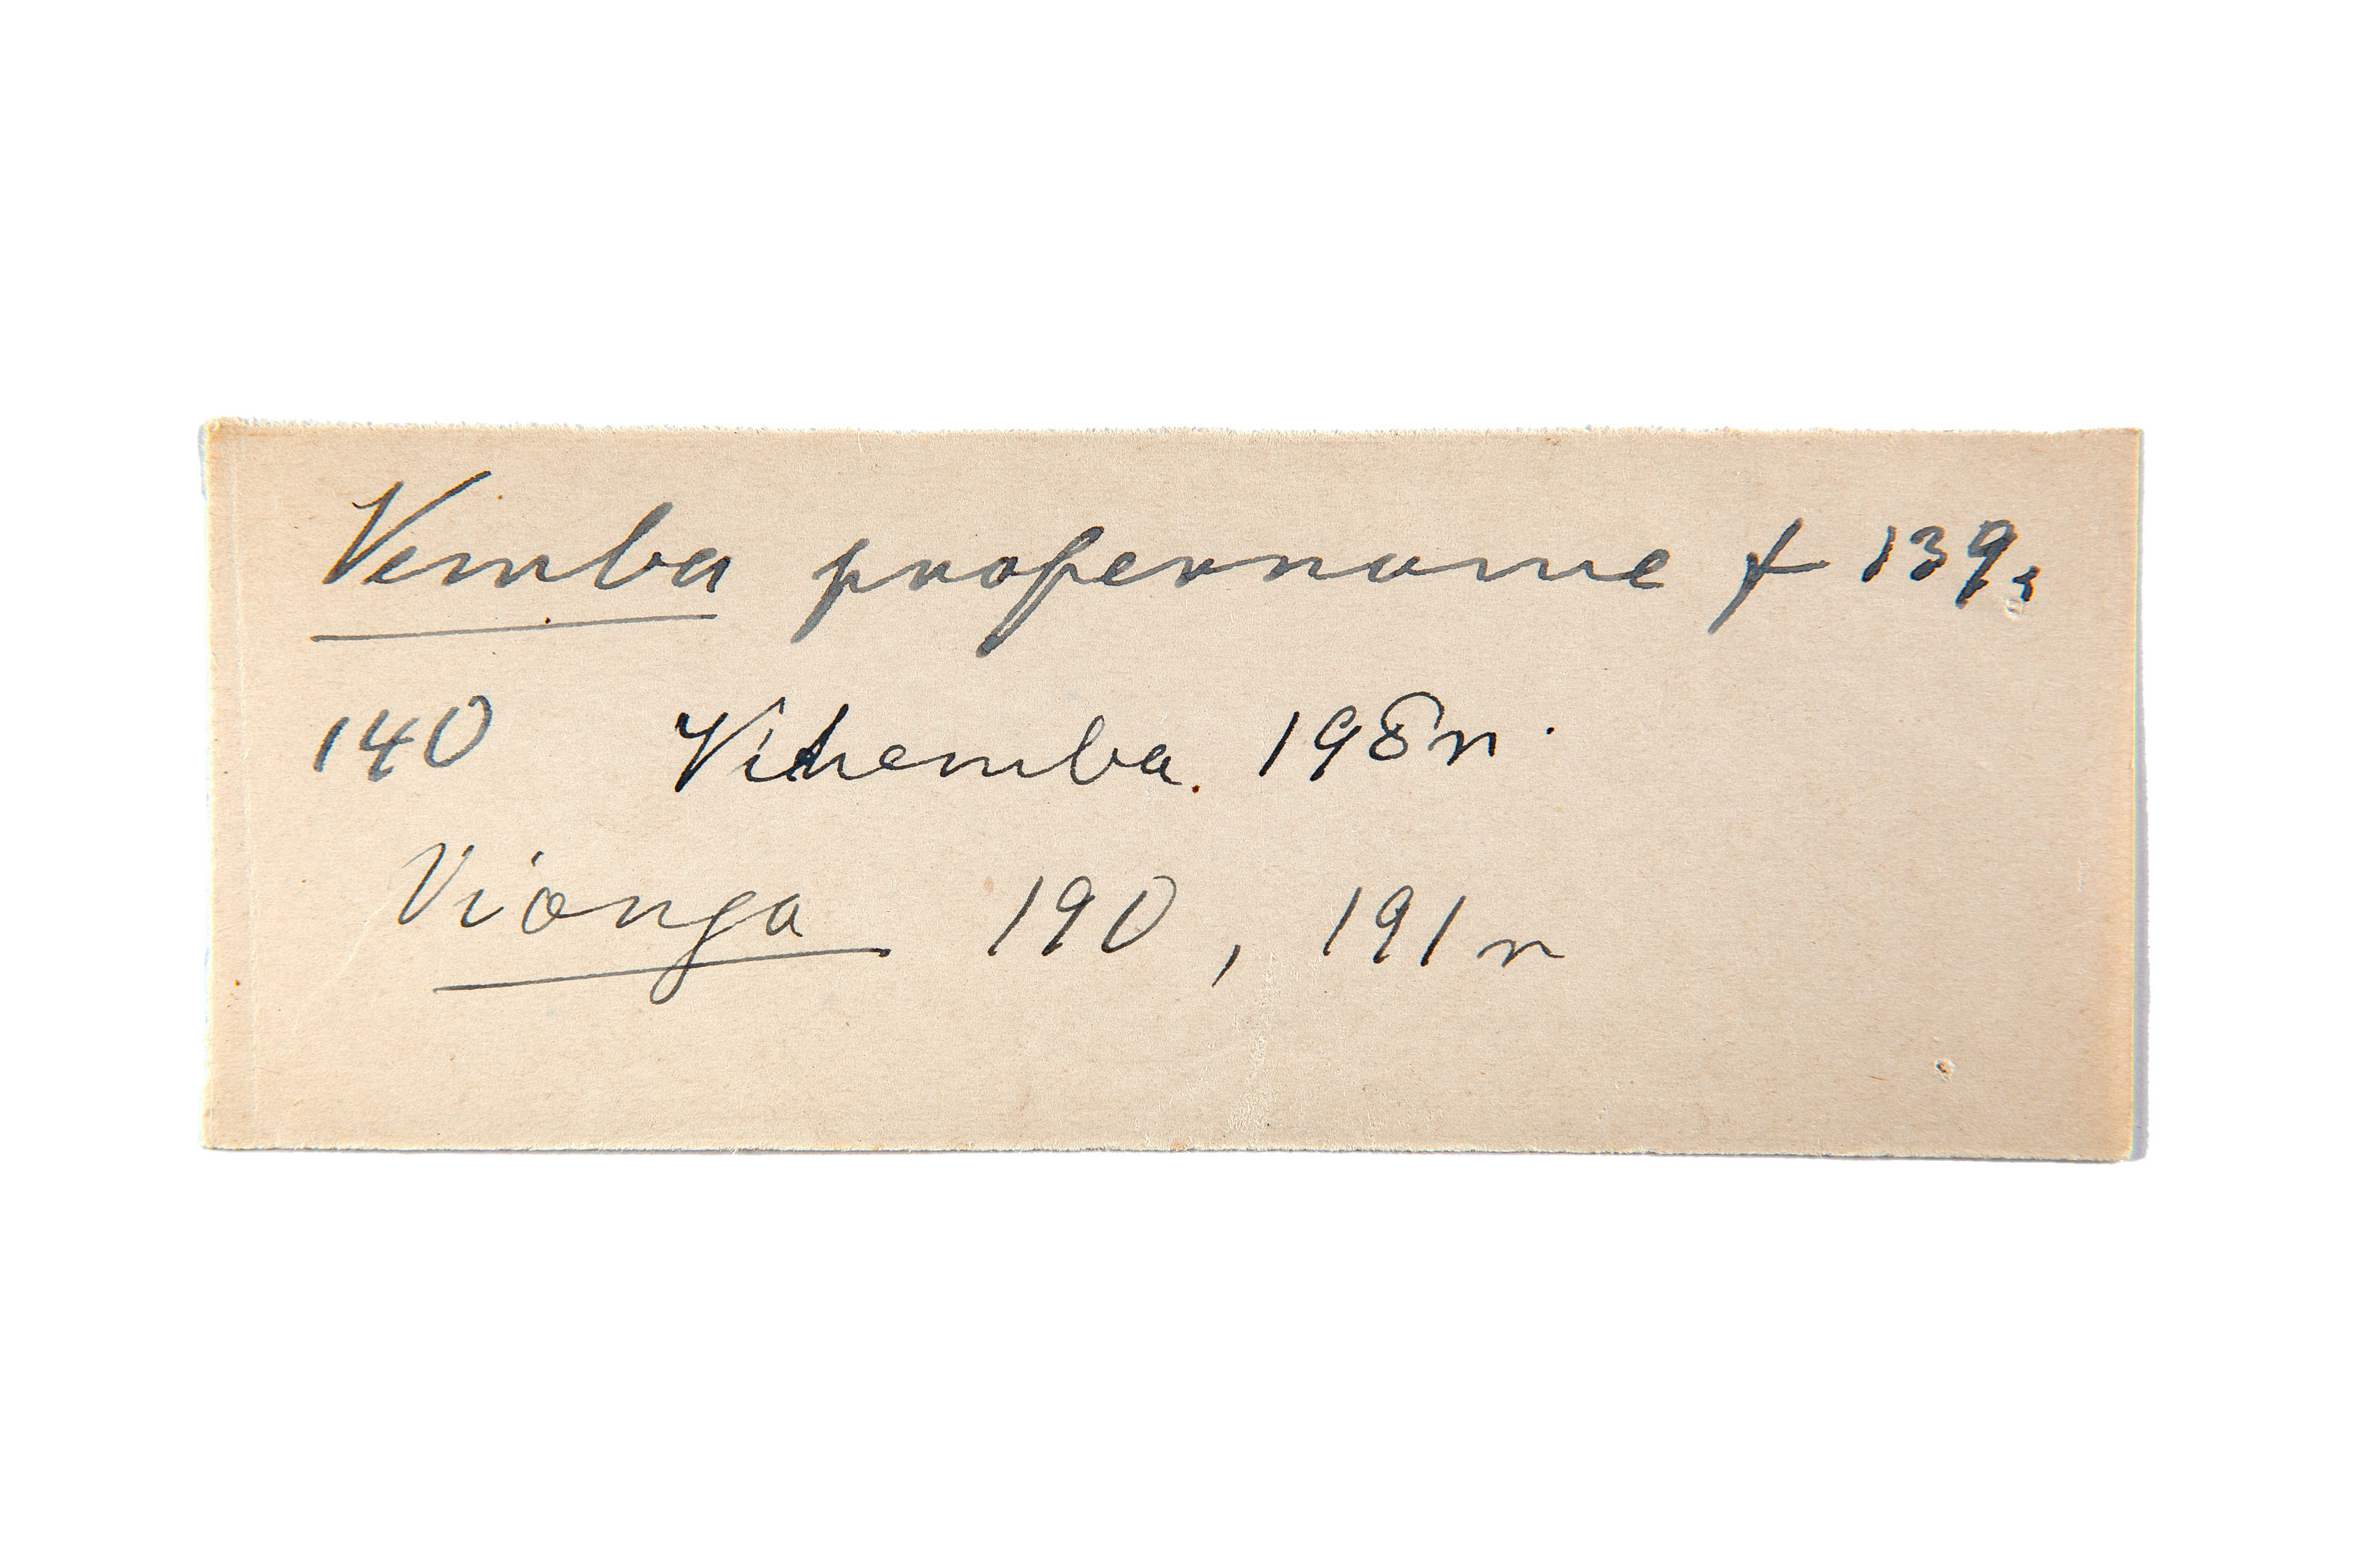 Vemba propername f 139,
140 Vihemba. 198n.
Vionga 190, 191n